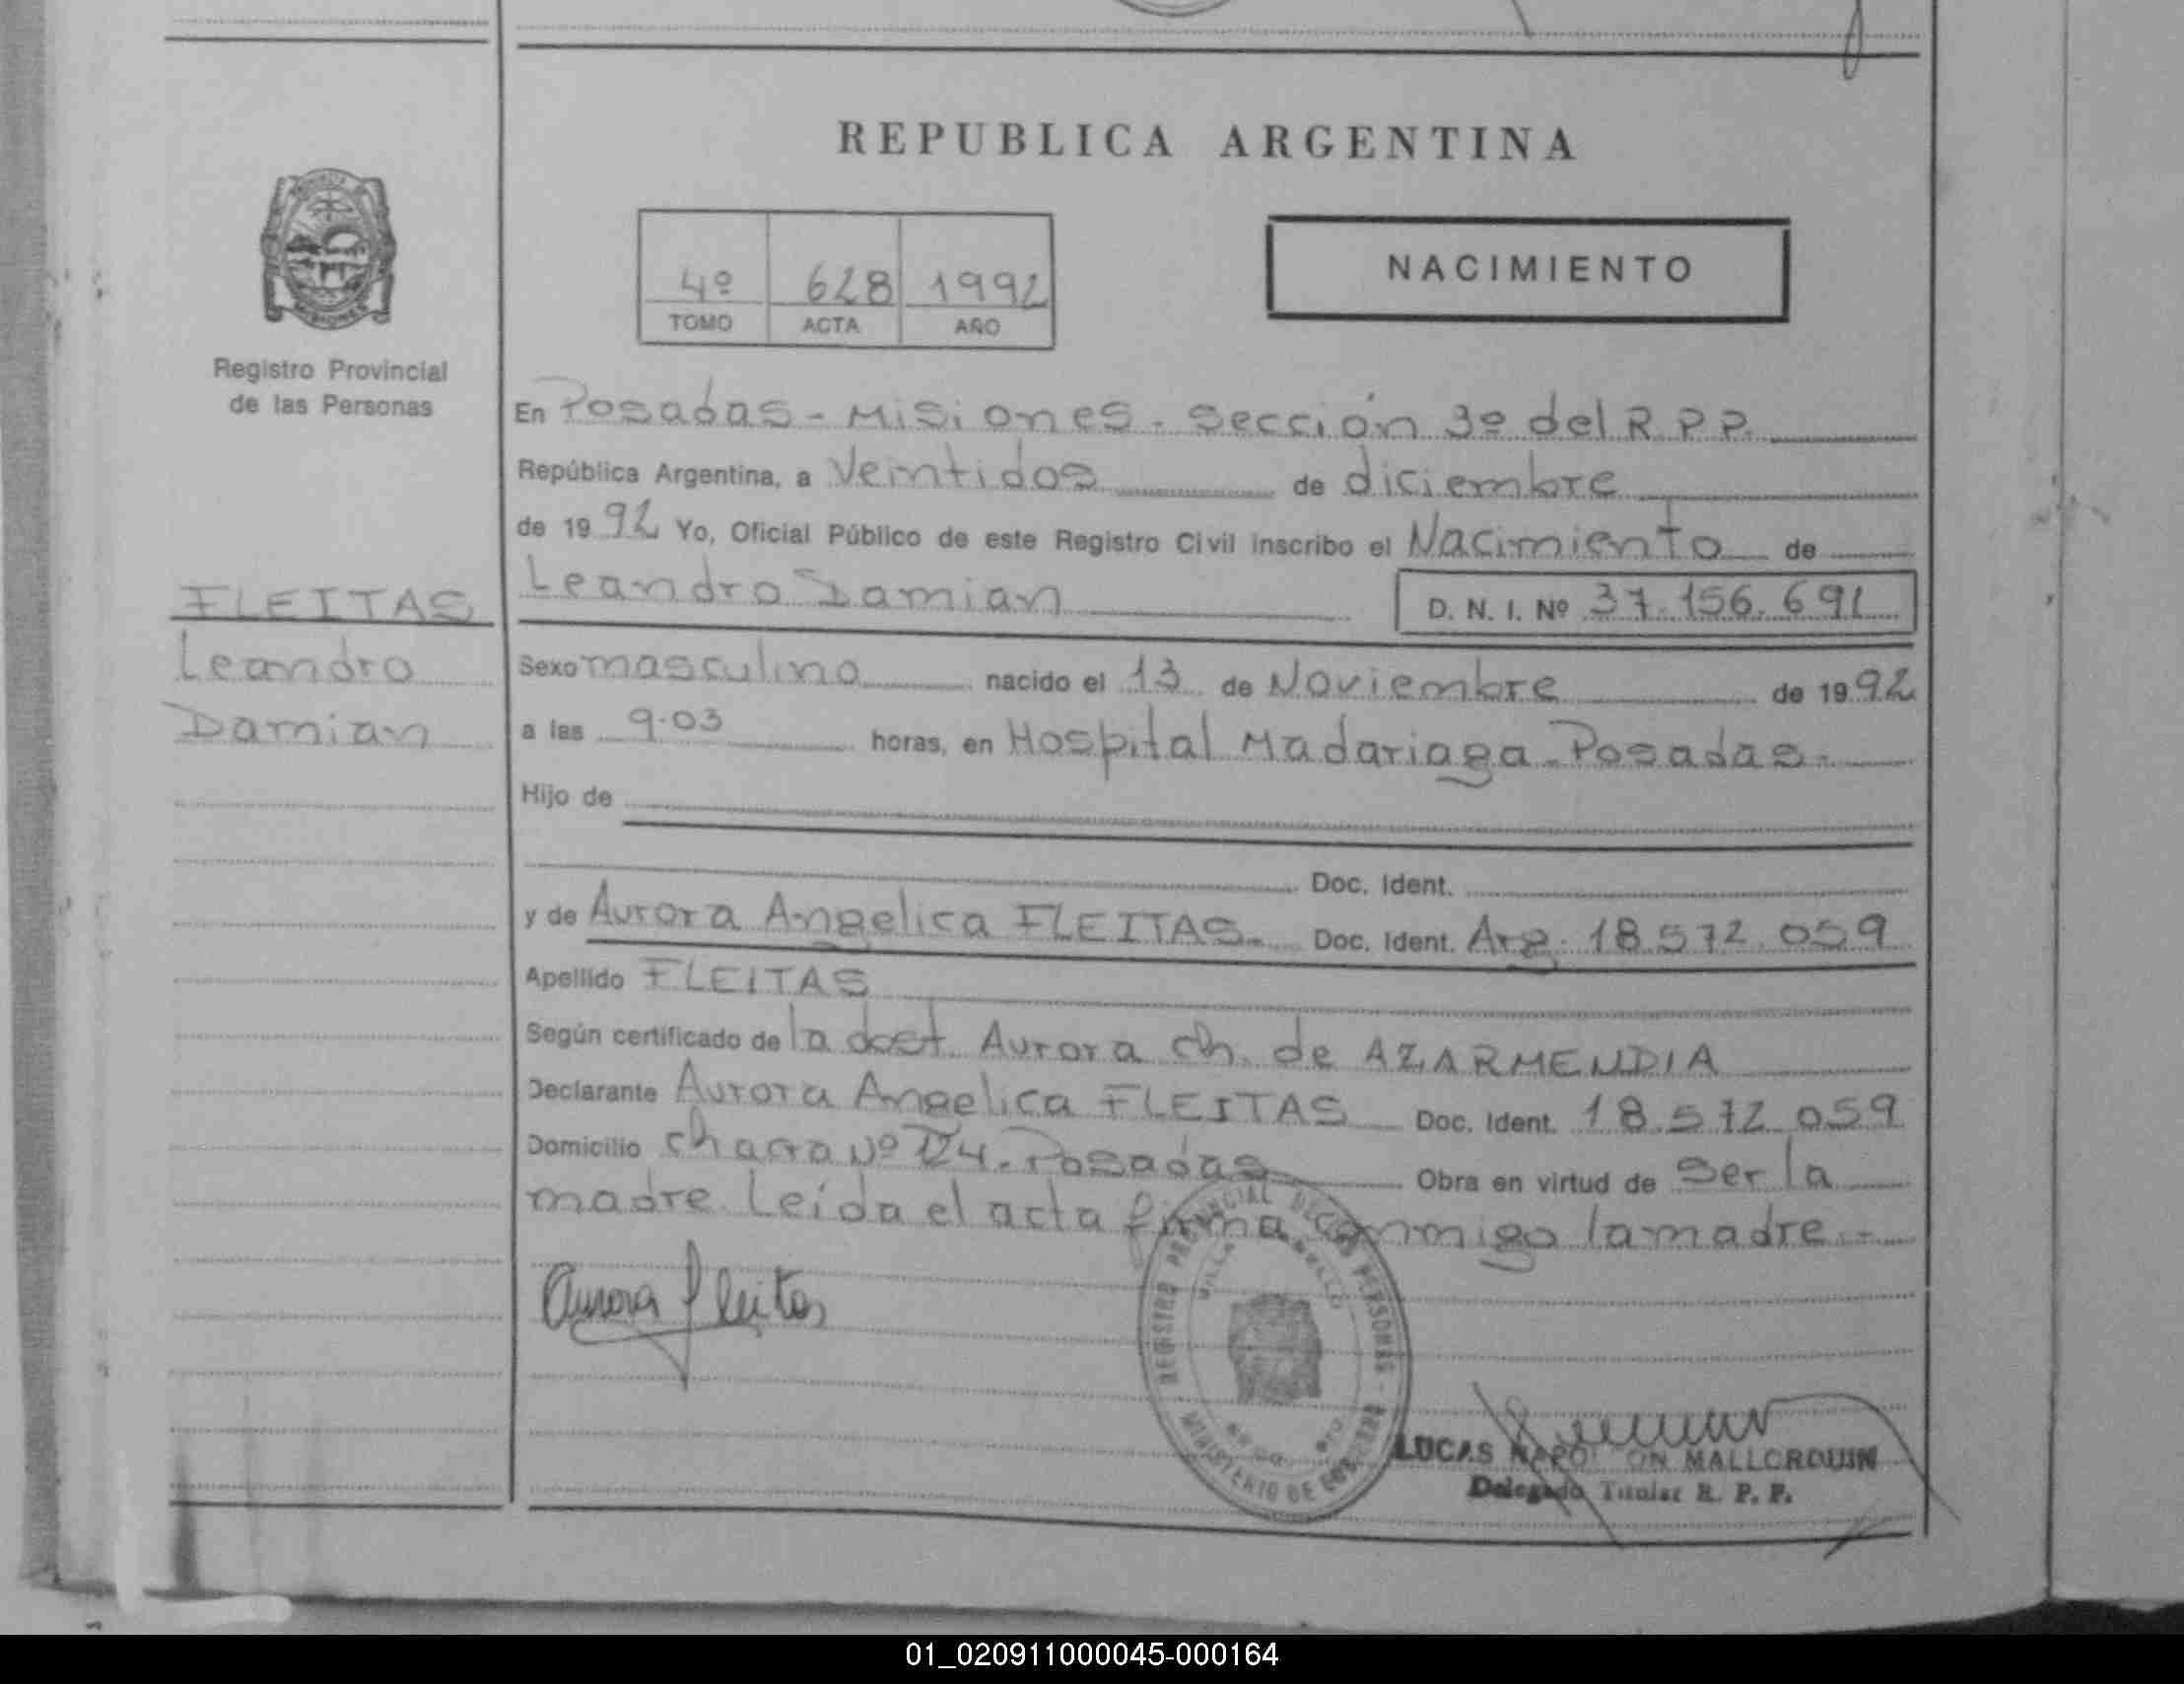 REPUBLICA ARGENTINA
NACIMIENTO
4º 628 1992
TOMO ACTA AÑO
PROVINCIA DE
MISIONES
Registro Provincial
de las Personas
En Posadas - Misiones - Sección 3º del R.P.P.
República Argentina, a Veintidos de diciembre
de 1992 Yo, Oficial Público de este Registro Civil inscribo el Nacimiento de
Leandro Damian D. N. I. Nº 37.156.691
FLEITAS
Leandro
Damian
Sexo masculino nacido el 13 de Noviembre de 1992
a las 9.03 horas, en Hospital Madariaga - Posadas.
Hijo de
Doc. Ident.
y de Aurora Angelica FLEITAS. Doc. Ident. Arg. 18.572.059
Apellido FLEITAS
Según certificado de la doct. Aurora ch. de AZARMENDIA
Declarante Aurora Angelica FLEITAS Doc. Ident. 18.572.059
Domicilio Chacra Nº 124. Posadas Obra en virtud de Ser la
madre. Leída el acta firma conmigo la madre.-
Aurora Fleitas
REGISTRO PROVINCIAL DE LAS PERSONAS
VILLA
MINISTERIO DE GOBIERNO
LUCAS NAPOLEON MALLORQUIN
Delegado Titular R. P. P.
01_020911000045-000164